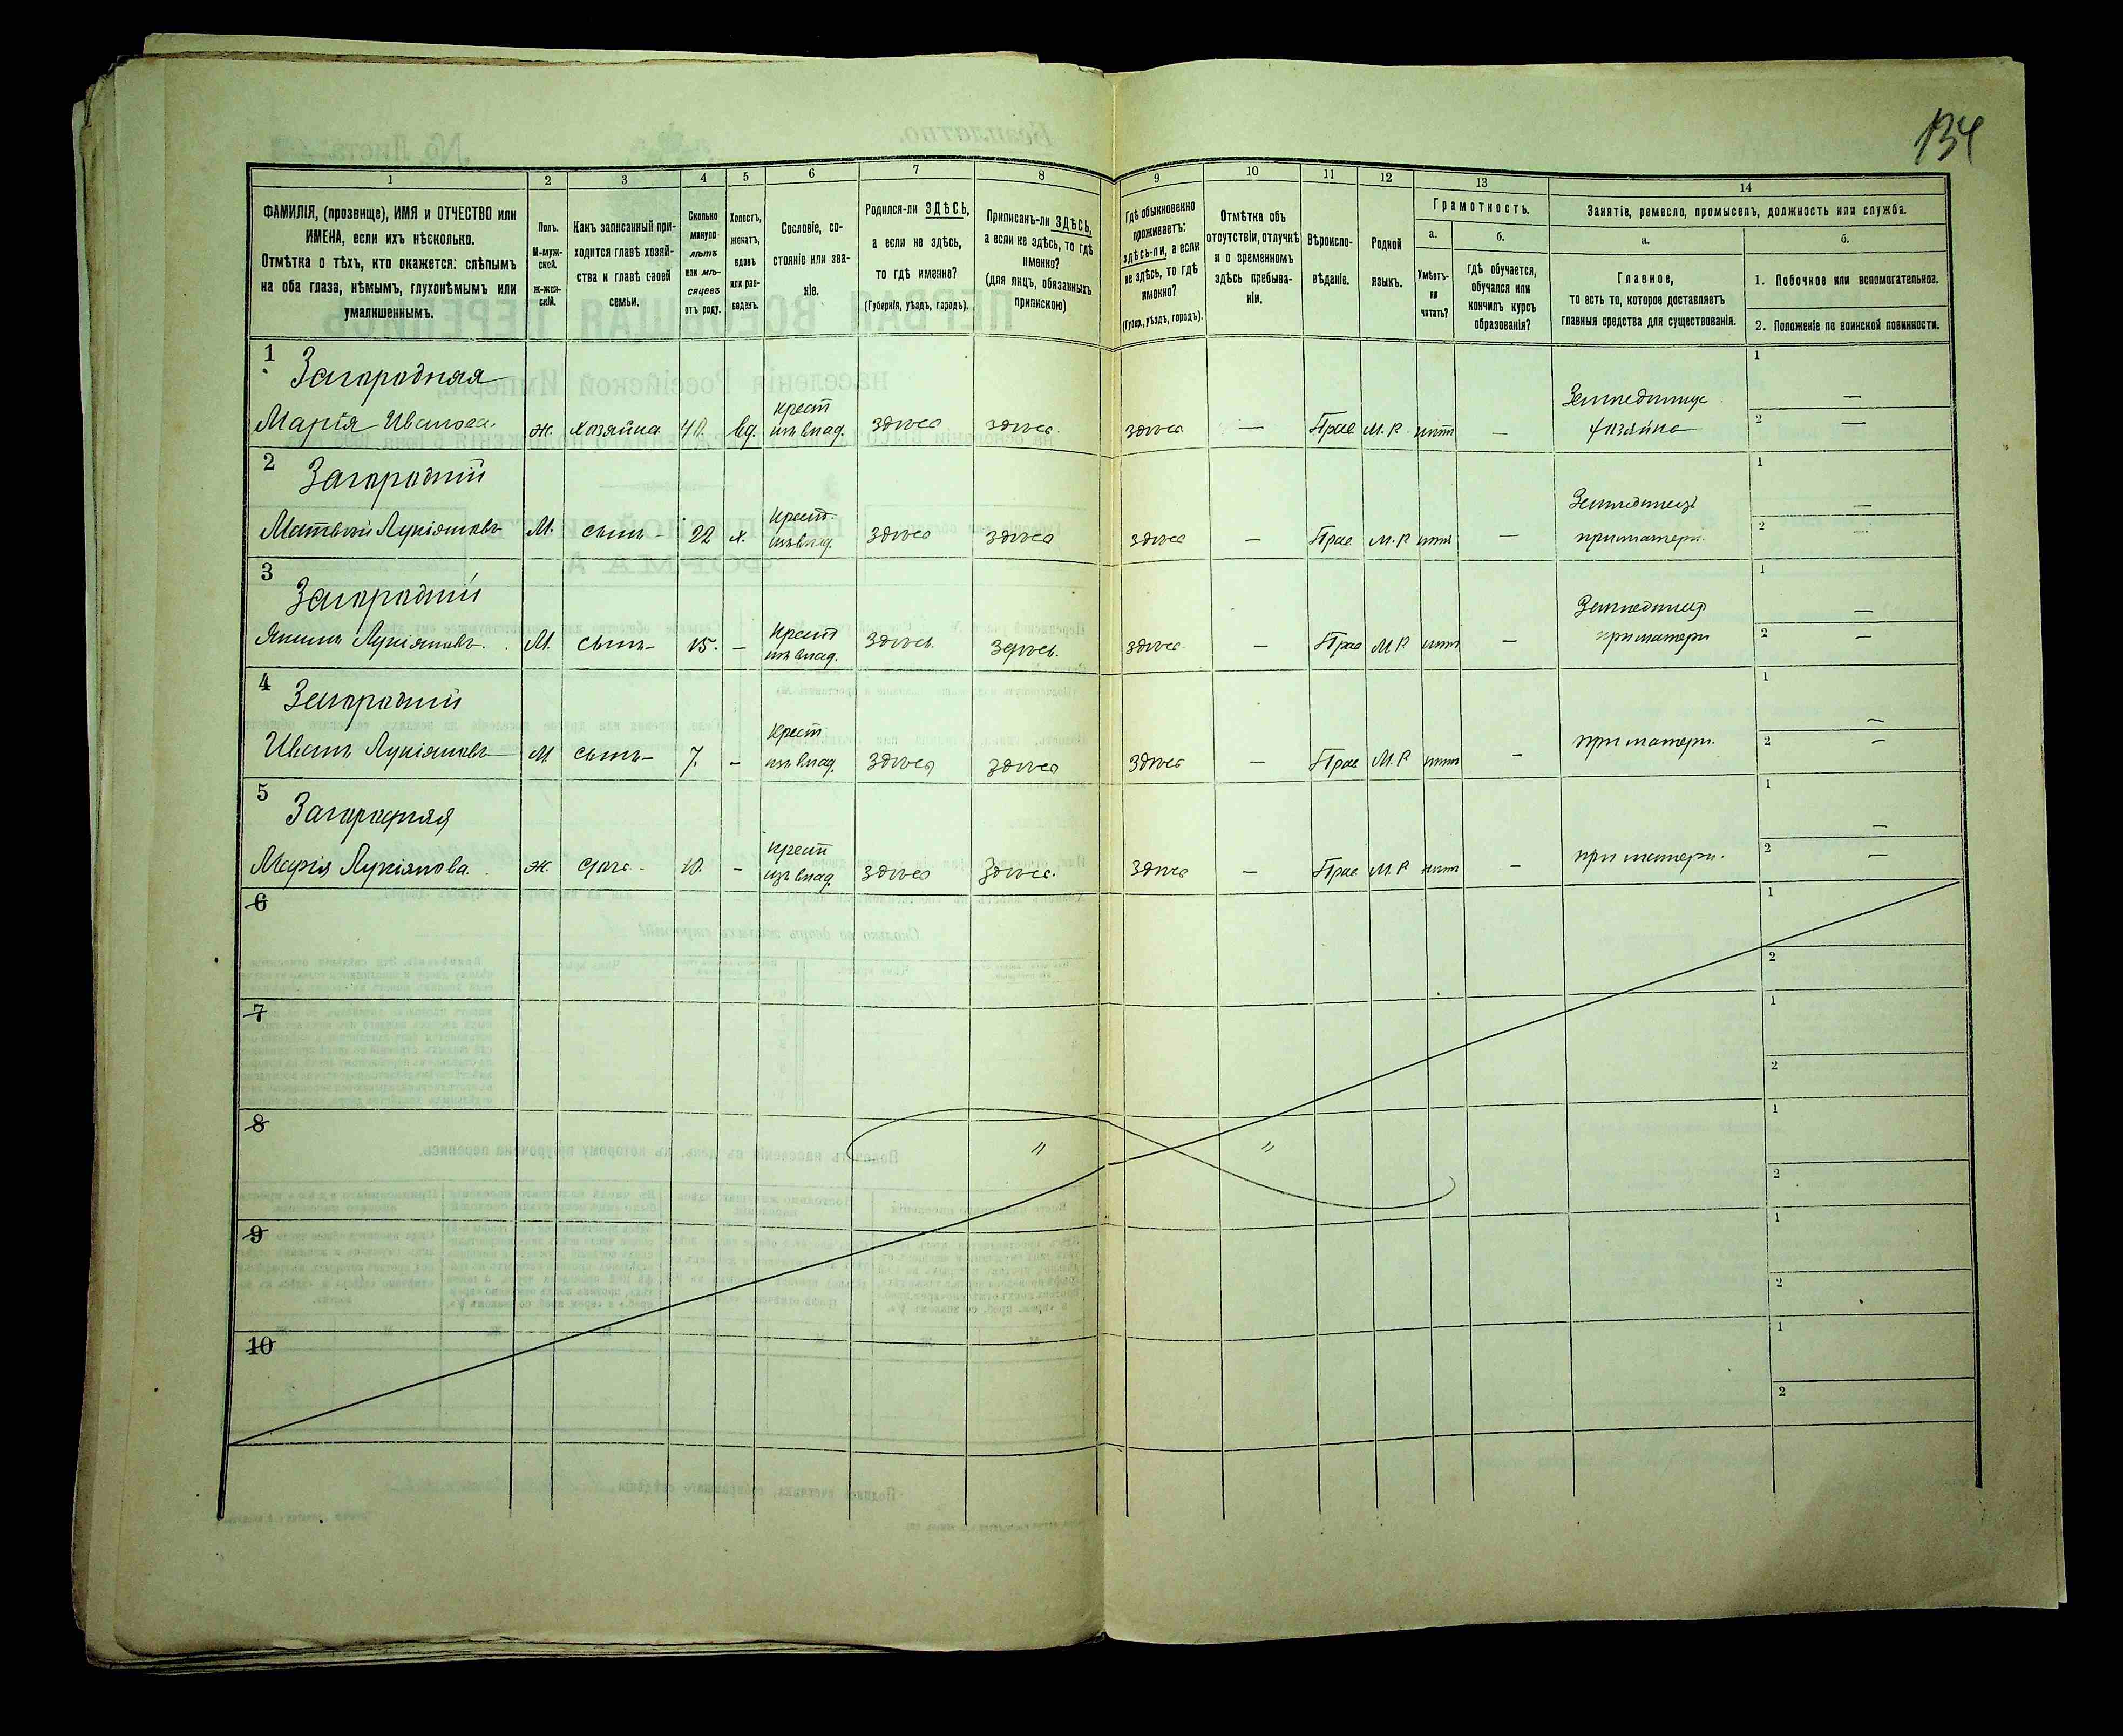 134
1 2 3 4 5 6 7 8 9 10 11 12 13 14
ФАМИЛІЯ, (прозвище), ИМЯ и ОТЧЕСТВО или ИМЕНА, если ихъ нѣсколько.
Отмѣтка о тѣхъ, кто окажется: слѣпымъ на оба глаза, нѣмымъ, глухонѣмымъ или умалишеннымъ.
Полъ. М-мужской. Ж-женскій.
Какъ записанный приходится главѣ хозяйства и главѣ своей семьи.
Сколько минуло лѣтъ или мѣсяцевъ отъ роду.
Холостъ, женатъ, вдовъ или разведенъ.
Сословіе, состояніе или званіе.
Родился-ли ЗДѢСЬ, а если не здѣсь, то гдѣ именно?
(Губернія, уѣздъ, городъ).
Приписанъ-ли ЗДѢСЬ, а если не здѣсь, то гдѣ именно?
(для лицъ, обязанныхъ припискою)
Гдѣ обыкновенно проживаетъ: здѣсь-ли, а если не здѣсь, то гдѣ именно?
(Губер., уѣздъ, городъ).
Отмѣтка объ отсутствіи, отлучкѣ и о временномъ здѣсь пребываніи.
Вѣроисповѣданіе.
Родной языкъ.
Грамотность.
а. Умѣетъ-ли читать?
б. гдѣ обучается, обучался или кончилъ курсъ образованія?
Занятіе, ремесло, промыселъ, должность или служба.
а. Главное, то есть то, которое доставляетъ главныя средства для существованія.
б.
1. Побочное или вспомогательное.
2. Положеніе по воинской повинности.
1 Загородняя
Марія Иванова ж. хозяйка 40. вд. крест изъ влад. здѣсь здѣсь здѣсь — Прав М.Р. нѣтъ — Земледѣлица хозяйка 1 — 2 —
2 Загородній
Матвѣй Лукіяновъ М. сынъ 22 х. крест. изъ влад. здѣсь здѣсь здѣсь — Прав. М.Р нѣтъ — Земледѣлецъ при матери. 1 — 2 —
3 Загородній
Якимъ Лукіяновъ. М. сынъ 15. — крест изъ влад. здѣсь. здѣсь. здѣсь — Прав М Р нѣтъ — Земледѣлец при матери 1 — 2 —
4 Загородній
Иванъ Лукіяновъ М. сынъ 7. — крест изъ влад. здѣсь здѣсь здѣсь — Прав М.Р нѣтъ — при матери. 1 — 2 —
5 Загородняя
Марія Лукіянова. ж. дочь 10. — крест изъ влад. здѣсь здѣсь. здѣсь — Прав М.Р нѣтъ — при матери. 1 — 2 —
6 1 2
7 1 2
8 〃 〃 1 2
9 1 2
10 1 2